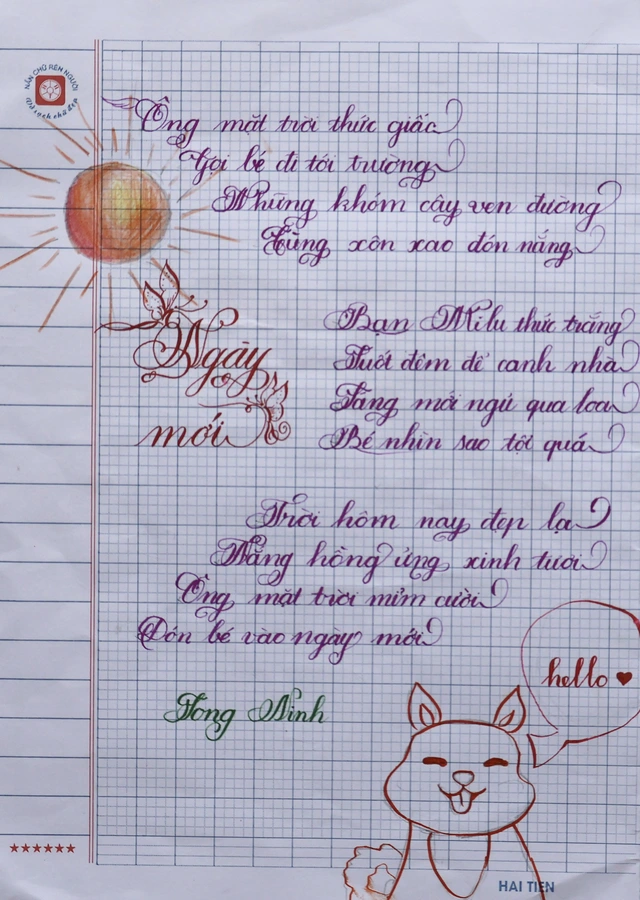 NẮN CHỮ RÈN NGƯỜI
Vở sạch chữ đẹp
Ông mặt trời thức giấc
Gọi bé đi tới trường
Những khóm cây ven đường
Cùng xôn xao đón nắng
Ngày
mới
Bạn Milu thức trắng
Suốt đêm để canh nhà
Tảng mới ngủ qua loa
Bé nhìn sao tội quá
Trời hôm nay đẹp lạ
Nắng hồng ửng xinh tươi
Ông mặt trời mỉm cười
Đón bé vào ngày mới
Tòng Ninh
hello
HAI TIEN